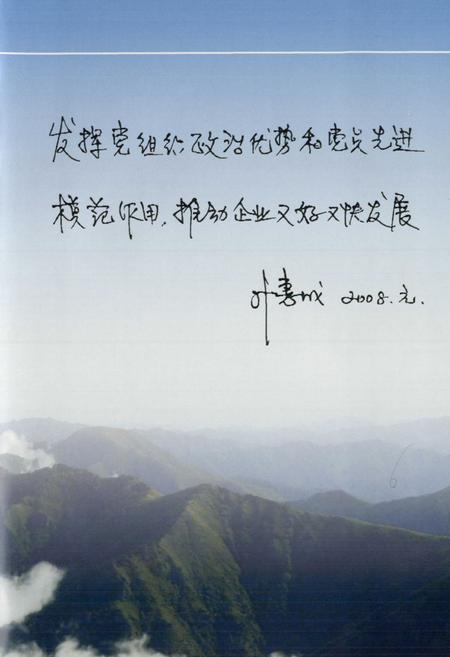 发挥党组织政治优势和党员先进
模范作用，推动企业又好又快发展
叶惠成 2008.元.